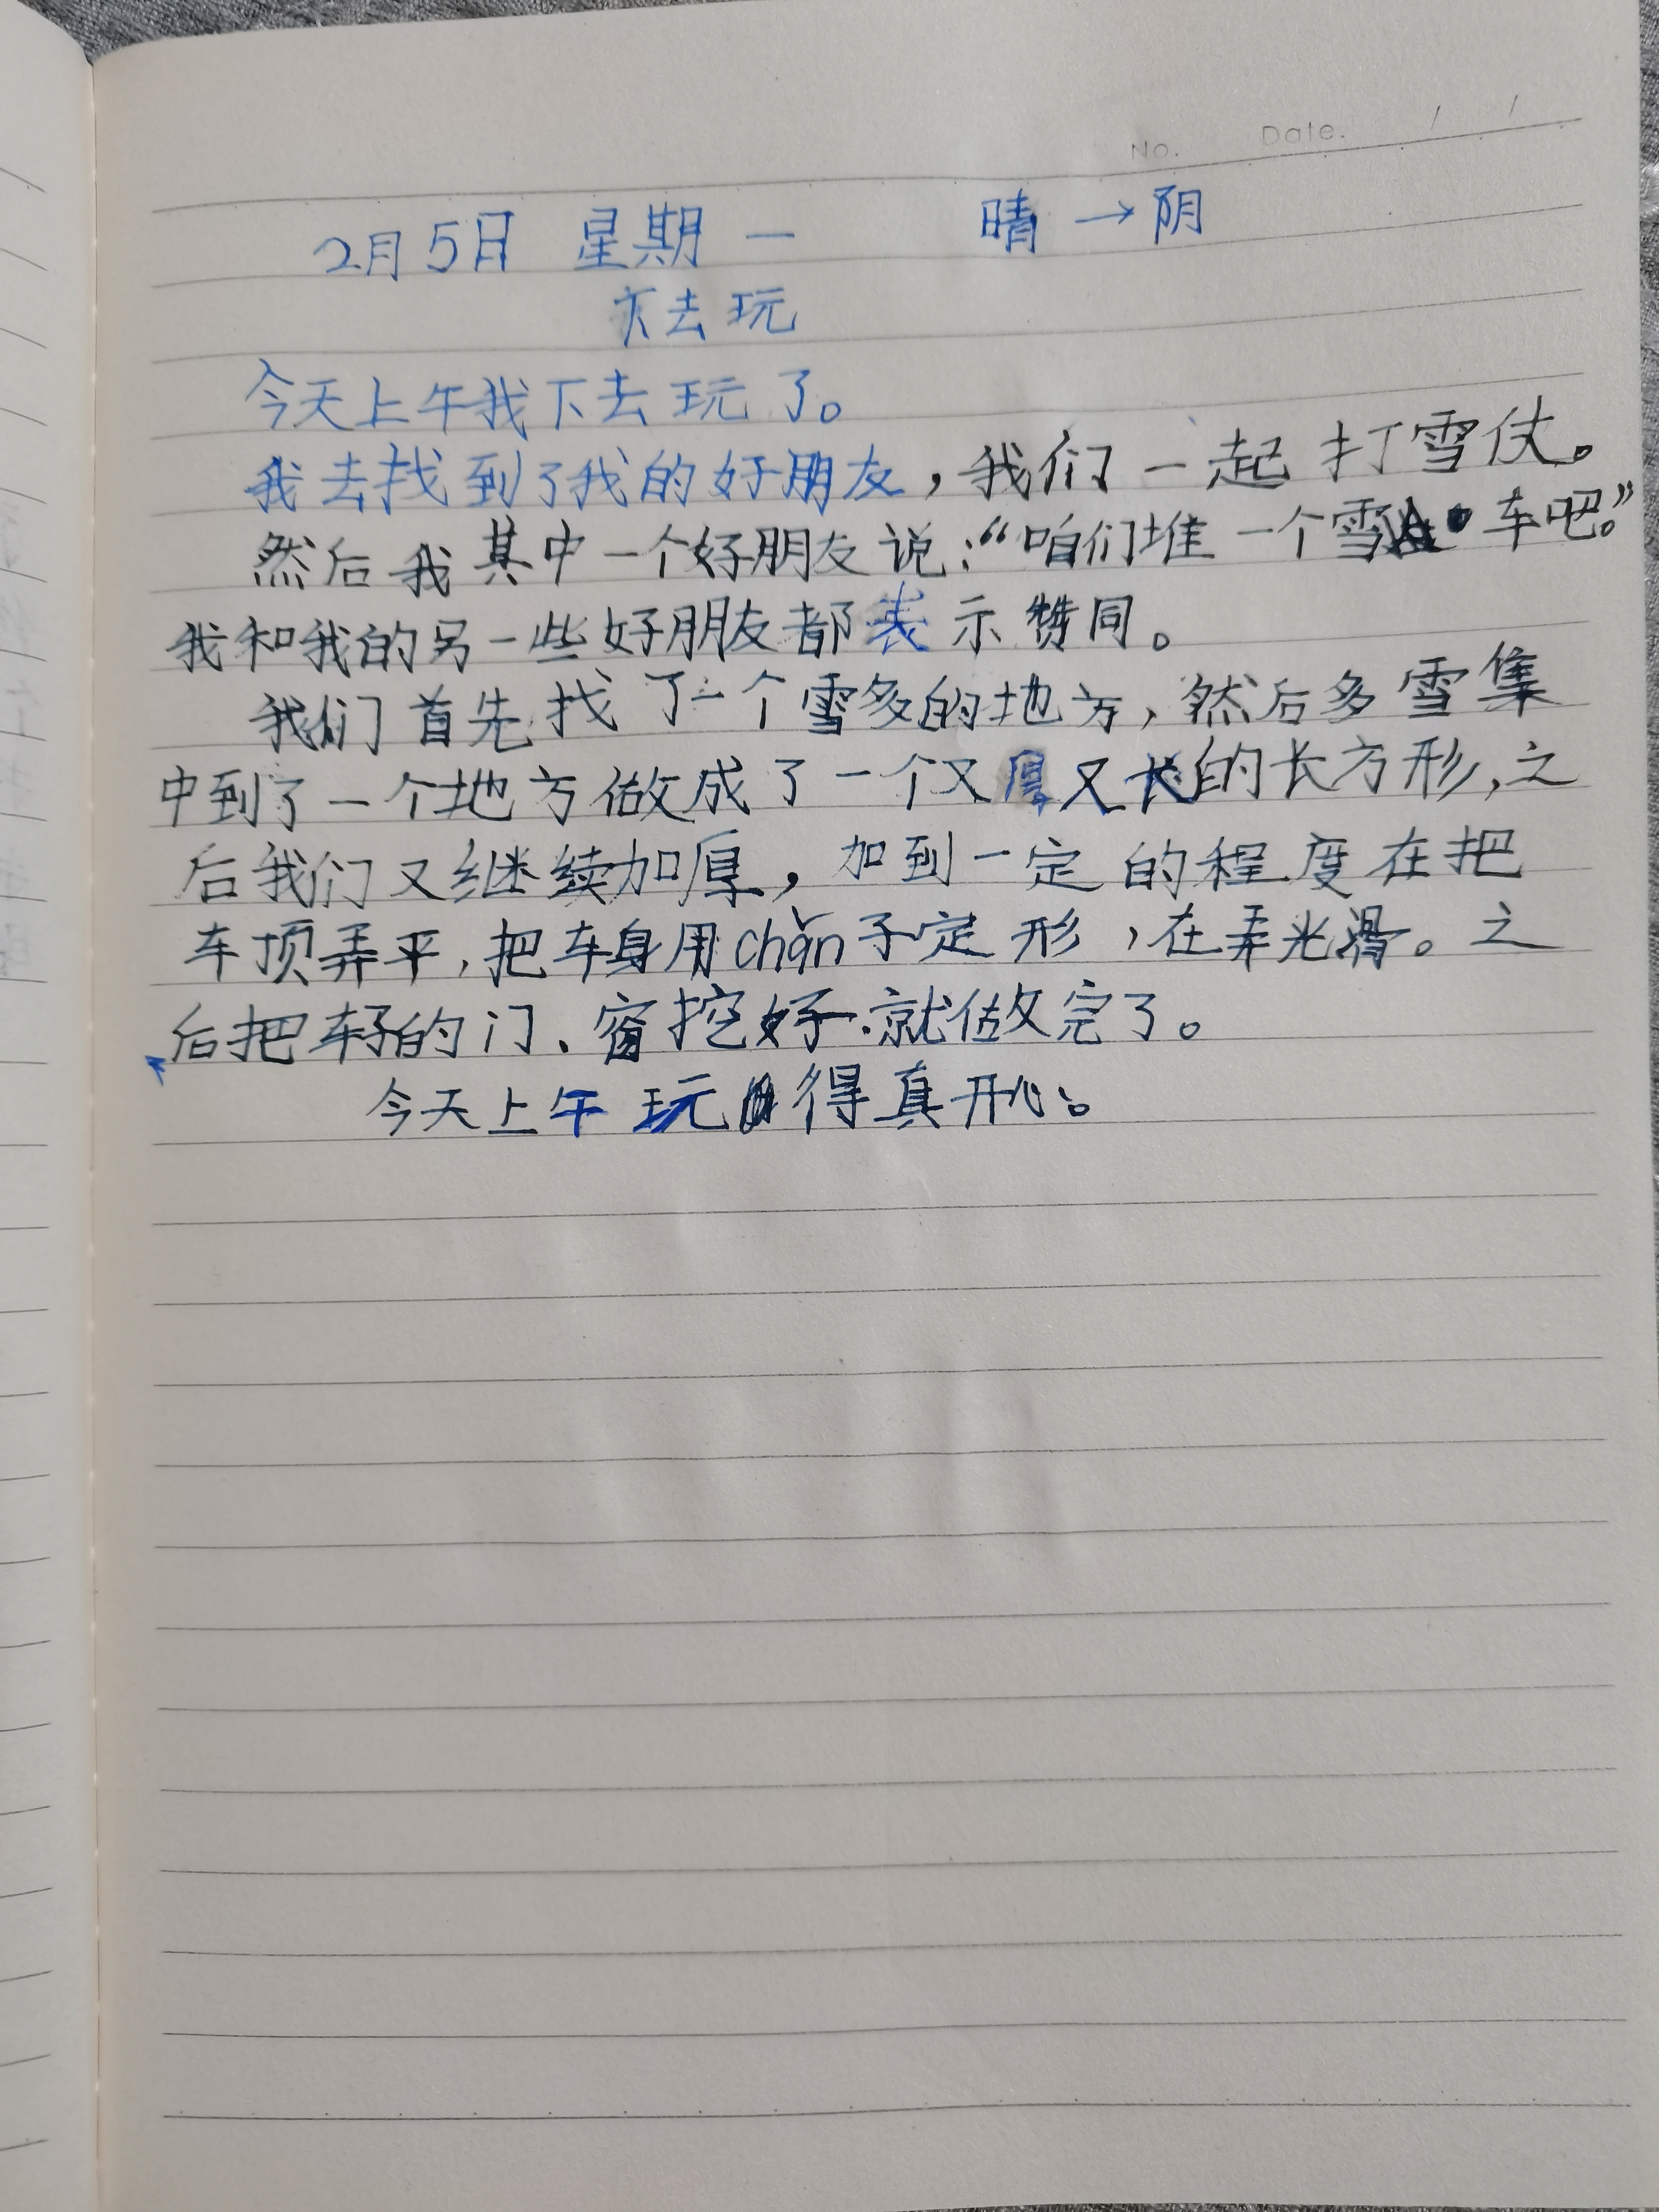 No. Date. / /
2月5日 星期一 晴→阴
下去玩
今天上午我下去玩了。
我去找到了我的好朋友，我们一起打雪仗。
然后我其中一个好朋友说：“咱们堆一个雪车吧。”
我和我的另一些好朋友都表示赞同。
我们首先找了一个雪多的地方，然后多雪集
中到了一个地方做成了一个又厚又长的长方形，之
后我们又继续加厚，加到一定的程度在把
车顶弄平，把车身用chǎn子定形，在弄光滑。之
后把车子的门、窗挖好.就做完了。
今天上午玩得真开心。